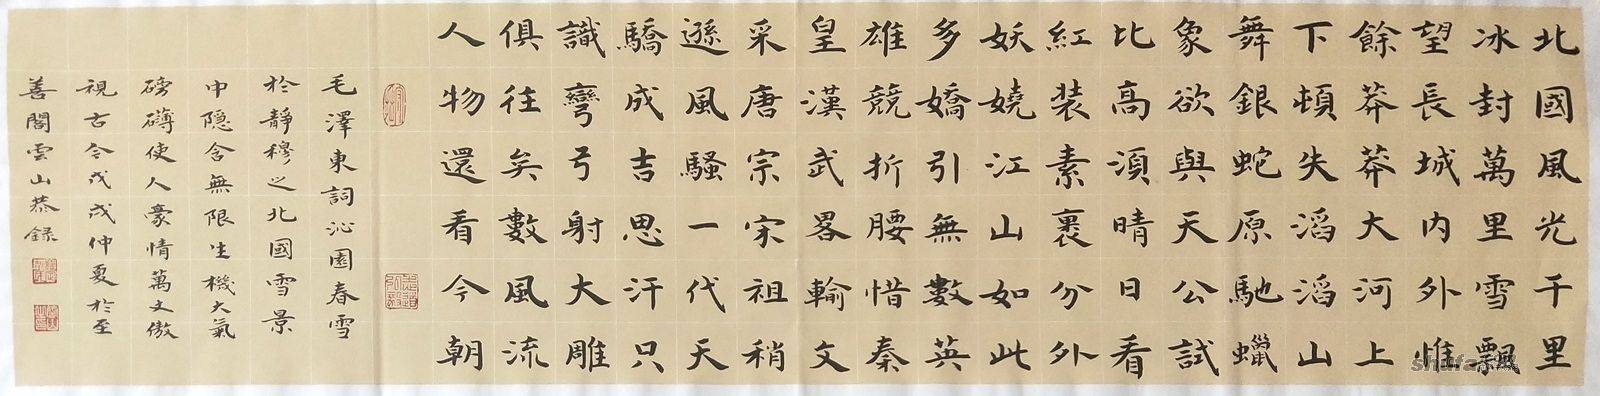 北國風光千里
冰封萬里雪飄
望長城内外惟
餘莽莽大河上
下頓失滔滔山
舞銀蛇原馳蠟
象欲與天公試
比高湏晴日看
紅裝素裹分外
妖嬈江山如此
多嬌引無數英
雄競折腰惜秦
皇漢武畧輸文
采唐宗宋祖稍
遜風騷一代天
驕成吉思汗只
識彎弓射大雕
俱往矣數風流
人物還看今朝
毛澤東詞沁園春雪
於靜穆之北國雪景
中隐含無限生機大氣
磅礴使人豪情萬丈傲
視古今戊戌仲夏於至
善閣雲山恭録